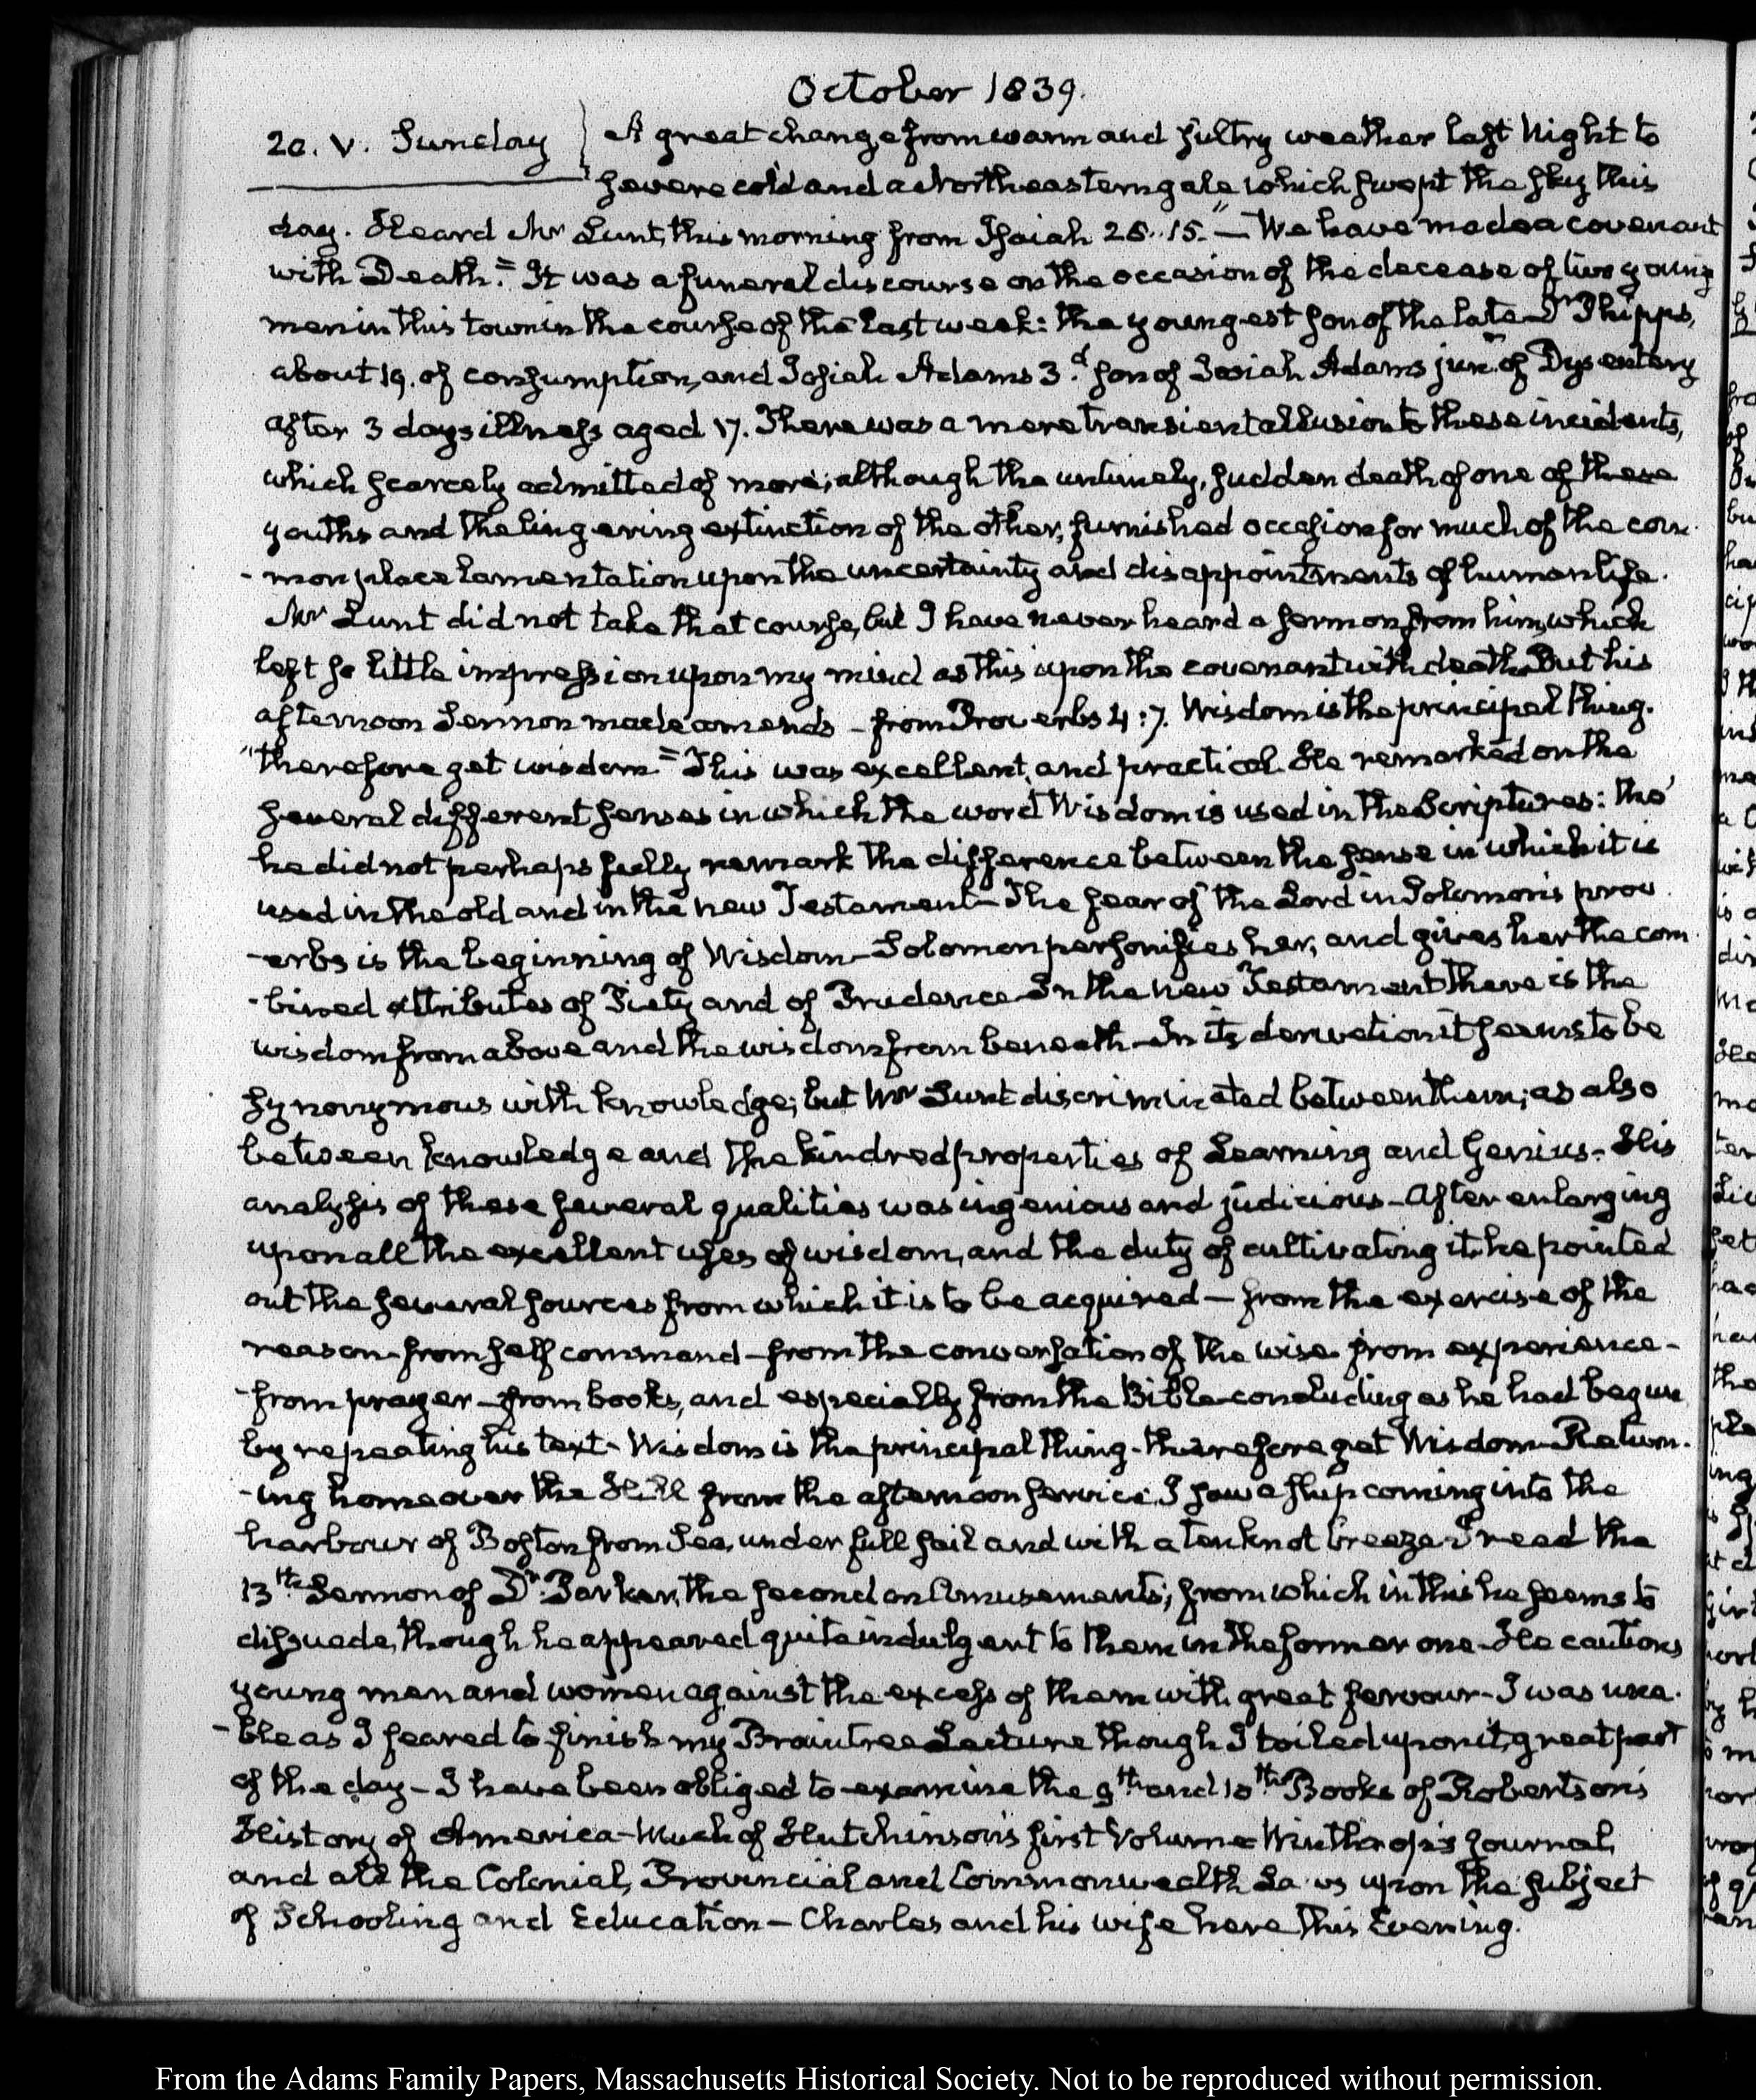 October 1839.
20. V. Sunday } A great change from warm and sultry weather last Night to
severe cold and a Northeastern gale which swept the sky this
day. Heard Mr Lunt, this morning from Isaiah 28..15." — We have made a covenant
with Death." It was a funeral discourse on the occasion of the decease of two young
men in this town in the course of the last week: the youngest son of the late Dr Phipps,
about 19. of consumption, and Josiah Adams 3.d son of Josiah Adams junr. of Dysentery
after 3 days illness aged 17. There was a mere transient allusion to these incidents,
which scarcely admitted of more; although the untimely, sudden death of one of these
youths and the lingering extinction of the other, furnished occasion for much of the com
-mon place lamentation upon the uncertainty and disappointments of human life.
Mr Lunt did not take that course, but I have never heard a sermon from him, which
left so little impression upon my mind as this upon the covenant with death. But his
afternoon Sermon made amends – from Proverbs 4:7. Wisdom is the principal thing.
"therefore get wisdom." This was excellent, and practical. He remarked on the
several different senses in which the word Wisdom is used in the Scriptures: tho'
he did not perhaps fully remark the difference between the sense in which it is
used in the old and in the new Testament – The fear of the Lord in Solomon's prov
-erbs is the beginning of Wisdom – Solomon personifies her, and gives her the com
-bined attributes of Piety and of Prudence – In the new Testament there is the
wisdom from above and the wisdom from beneath – In its derivation it seems to be
synonymous with knowledge; but Mr Lunt discriminated between them; as also
between knowledge and the kindred properties of Learning and Genius – His
analysis of these several qualities was ingenious and judicious – After enlarging
upon all the excellent uses of wisdom, and the duty of cultivating it, he pointed
out the several sources from which it is to be acquired – from the exercise of the
reason – from self command – from the conversation of the wise from experience –
-from prayer – from books, and especially from the Bible – concluding as he had begun
by repeating his text – Wisdom is the principal thing – therefore get Wisdom – Return
-ing home over the Hill from the afternoon service, I saw a ship coming into the
harbour of Boston from Sea, under full sail and with a ten knot breeze. I read the
13th Sermon of Dr. Barker, the second on Amusements; from which in this he seems to
dissuade, though he appeared quite indulgent to them in the former one – He cautions
young men and women against the excess of them with great fervour – I was una
-ble as I feared to finish my Braintree Lecture though I toiled upon it, great part
of the day – I have been obliged to examine the 9th and 10th Books of Robertson's
History of America – Much of Hutchinson's first Volume Winthrop's Journal,
and all the Colonial, Provincial and Commonwealth Laws upon the subject
of Schooling and Education – Charles and his wife here this Evening.
From the Adams Family Papers, Massachusetts Historical Society. Not to be reproduced without permission.